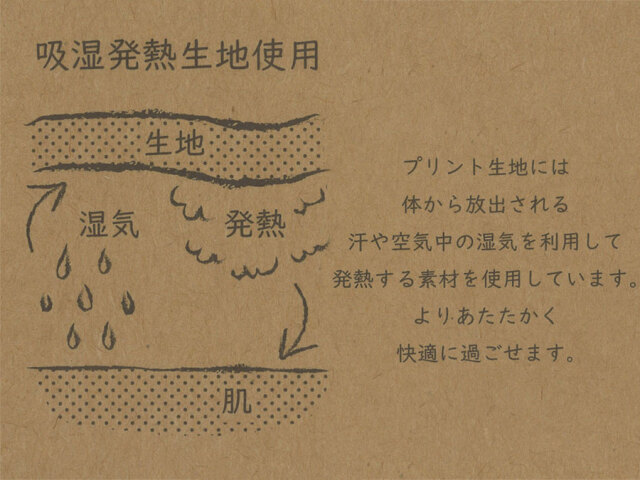 吸湿発熱生地使用
生地
湿気
発熱
肌
プリント生地には
体から放出される
汗や空気中の湿気を利用して
発熱する素材を使用しています。
よりあたたかく
快適に過ごせます。